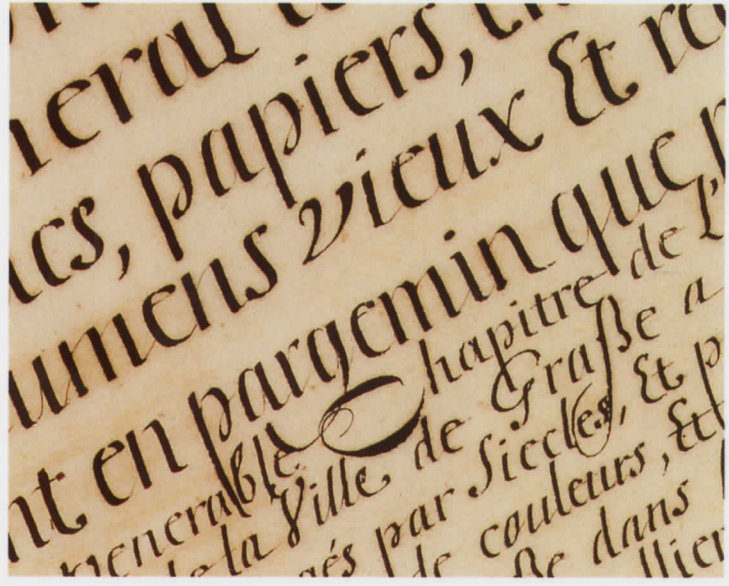 neral
acs, papiers,
umens vieux Et
nt en pargemin que
venerable Chapitre de l'
de la Ville de Graße a
gés par Siecles, Et
de couleurs, Et
ße dans
llier